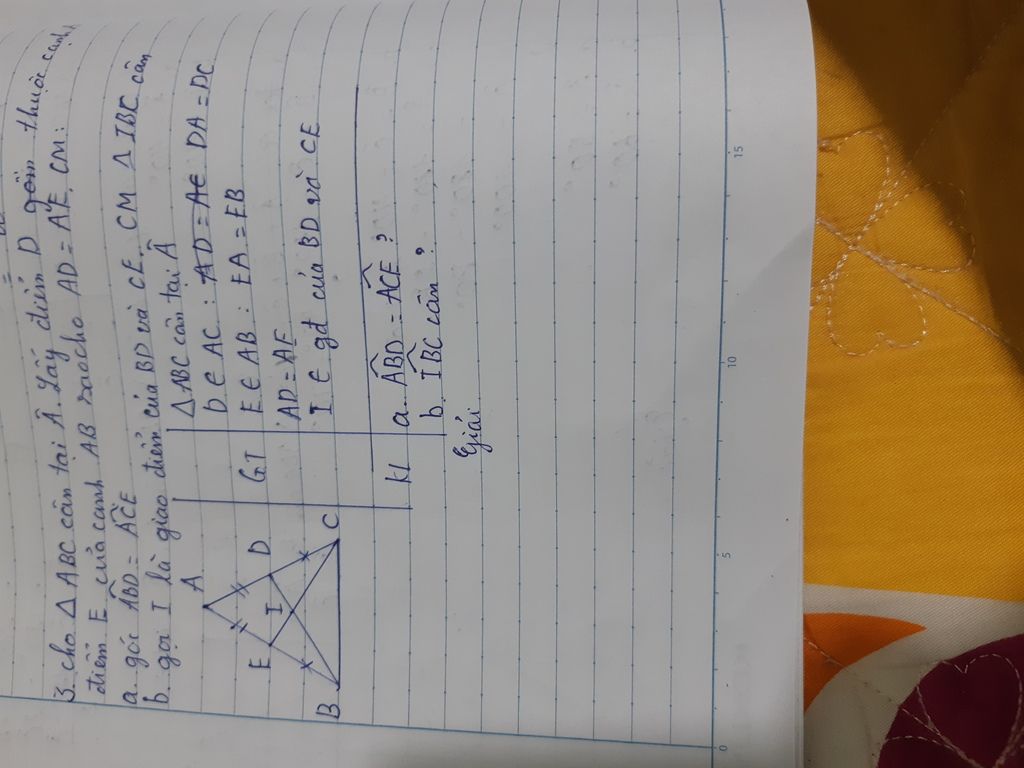 3. cho △ ABC cân tại Â. Lấy điểm D thuộc cạnh
điểm E của cạnh AB sao cho AD = AE. CM:
a góc ABD = ACE
b. gọi I là giao điểm của BD và CE. CM △ IBC cân
A
E
D
I
B
C
GT
△ ABC cân tại Â
D ∈ AC : AD = AE DA = DC
E ∈ AB : EA = EB
AD = AE
I ∈ gđ của BD và CE
KL
a. ABD = ACE ?
b. IBC cân ?
Giải
0
5
10
15